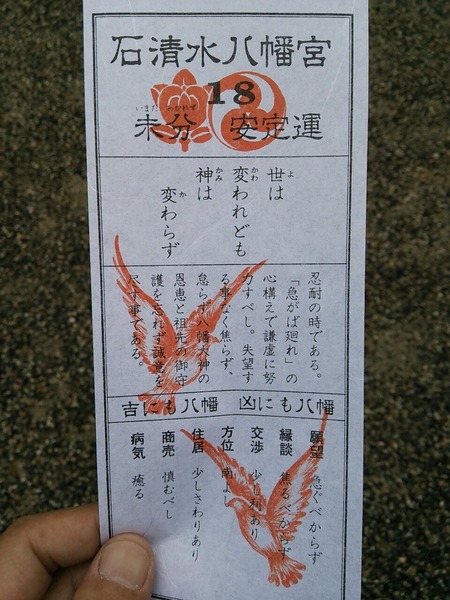 石清水八幡宮
18
いまだ わかれず
未分 安定運
世は
変われども
神は
変わらず
よ
かわ
かみ
か
忍耐の時である。
「急がば廻れ」の
心構えで謙虚に努
力すべし。失望す
る事なく焦らず、
怠らず八幡大神の
恩恵と祖先の御守
護を忘れず誠意を
尽す事である。
吉にも八幡 凶にも八幡
願望 急ぐべからず
縁談 焦るべからず
交渉 少し利あり
方位 南よし
住居 少しさわりあり
商売 慎むべし
病気 癒る